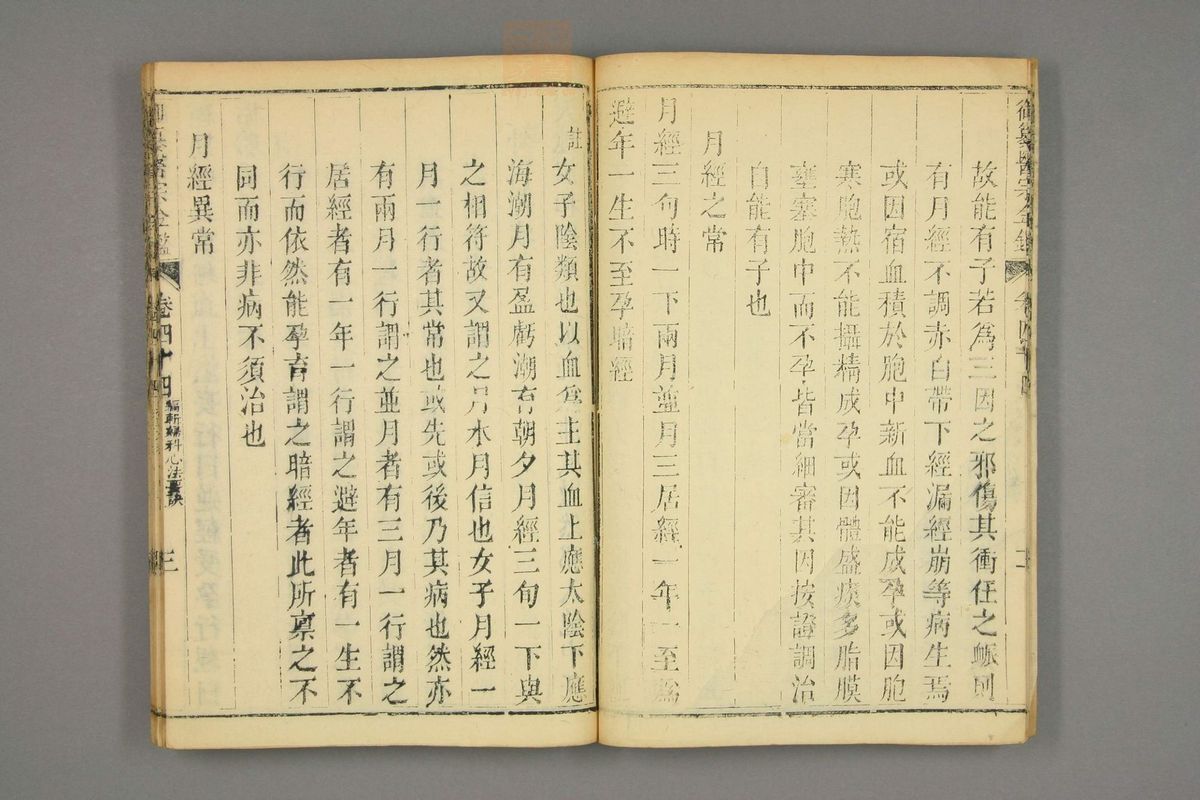 御纂醫宗金鑑 卷四十四 三
故能有子若爲三因之邪傷其衝任之脈則
有月經不調赤白帶下經漏經崩等病生焉
或因宿血積於胞中新血不能成孕或因胞
寒胞熱不能攝精成孕或因體盛痰多脂膜
壅塞胞中而不孕皆當細審其因按證調治
自能有子也
月經之常
月經三旬時一下兩月並月三居經一年一至爲
避年一生不至孕暗經
註女子陰類也以血爲主其血上應太陰下應
海潮月有盈虧潮有朝夕月經三旬一下與
之相符故又謂之月水月信也女子月經一
月一行者其常也或先或後乃其病也然亦
有兩月一行謂之並月者有三月一行謂之
居經者有一年一行謂之避年者有一生不
行而依然能孕育謂之暗經者此所稟之不
同而亦非病不須治也
月經異常
御纂醫宗金鑑 卷四十四 編輯婦科心法要訣 三